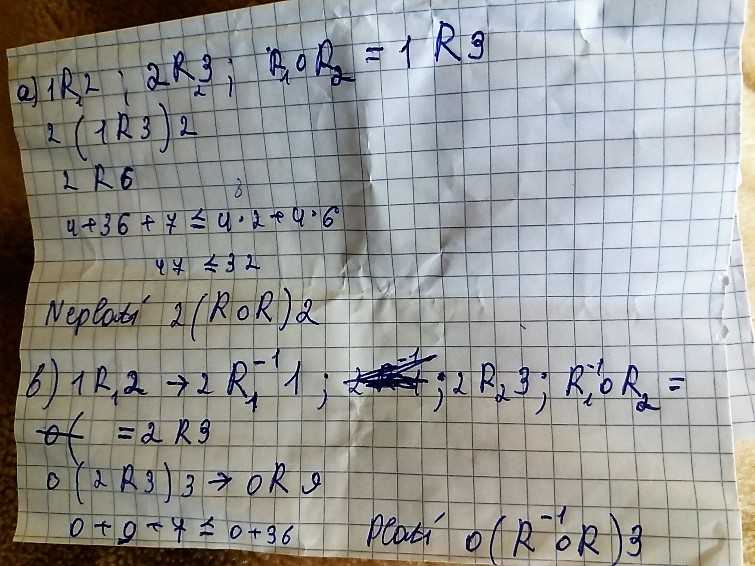 a) 1R₁2 ; 2R₂3 ; R₁oR₂ = 1 R 3
2 (1R3) 2
2 R6
4+36+7 ≤ 4·2+4·6
47 ≤ 32
Neplatí 2(RoR)2
b) 1R₁2 → 2 R₁⁻¹ 1 ; ; 2 R₂3 ; R₁⁻¹oR₂ =
= 2 R3
0 (2R3) 3 → 0R9
0+9+7 ≤ 0+36 Platí 0(R⁻¹oR)3